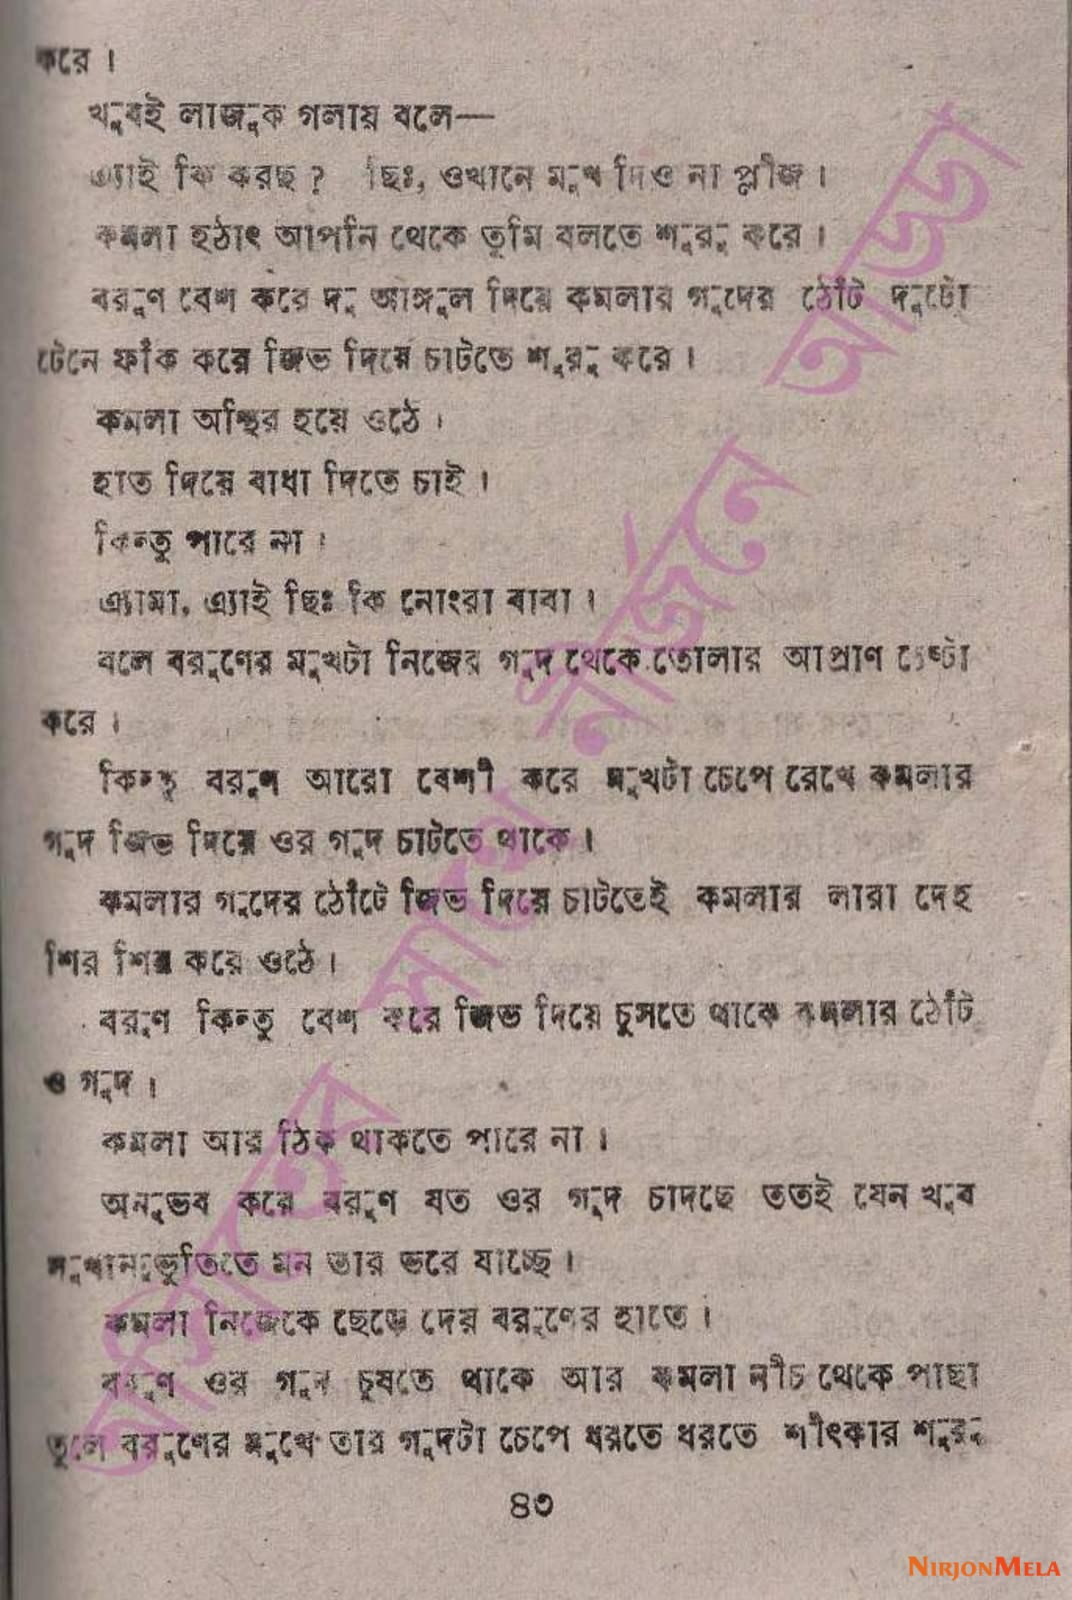 করে।
খুবই লাজুক গলায় বলে—
এ্যাই কি করছ? ছিঃ, ওখানে মুখ দিও না প্লীজ।
কমলা হঠাৎ আপনি থেকে তুমি বলতে শুরু করে।
বরুণ বেশ করে দু আঙ্গুল দিয়ে কমলার গুদের ঠোঁট দুটো
টেনে ফাঁক করে জিভ দিয়ে চাটতে শুরু করে।
কমলা অস্থির হয়ে ওঠে।
হাত দিয়ে বাধা দিতে চাই।
কিন্তু পারে না।
এ্যামা, এ্যাই ছিঃ কি নোংরা বাবা।
বলে বরুণের মুখটা নিজের গুদ থেকে তোলার আপ্রাণ চেষ্টা
করে।
কিন্তু বরুণ আরো বেশী করে মুখটা চেপে রেখে কমলার
গুদ জিভ দিয়ে ওর গুদ চাটতে থাকে।
কমলার গুদের ঠোঁটে জিভ দিয়ে চাটতেই কমলার লারা দেহ
শির শির করে ওঠে।
বরুণ কিন্তু বেশ করে জিভ দিয়ে চুসতে থাকে কমলার ঠোঁট
ও গুদ।
কমলা আর ঠিক থাকতে পারে না।
অনুভব করে বরুণ যত ওর গুদ চাদছে ততই যেন খুব
সুখানুভুতিতে মন তার ভরে যাচ্ছে।
কমলা নিজেকে ছেড়ে দেয় বরুণের হাতে।
বরুণ ওর গুদ চুষতে থাকে আর কমলা নীচ থেকে পাছা
তুলে বরুণের মুখে তার গুদটা চেপে ধরতে ধরতে শীৎকার শুরু
৪৩
আড্ডা নির্জনে সাথে
NIRJONMELA